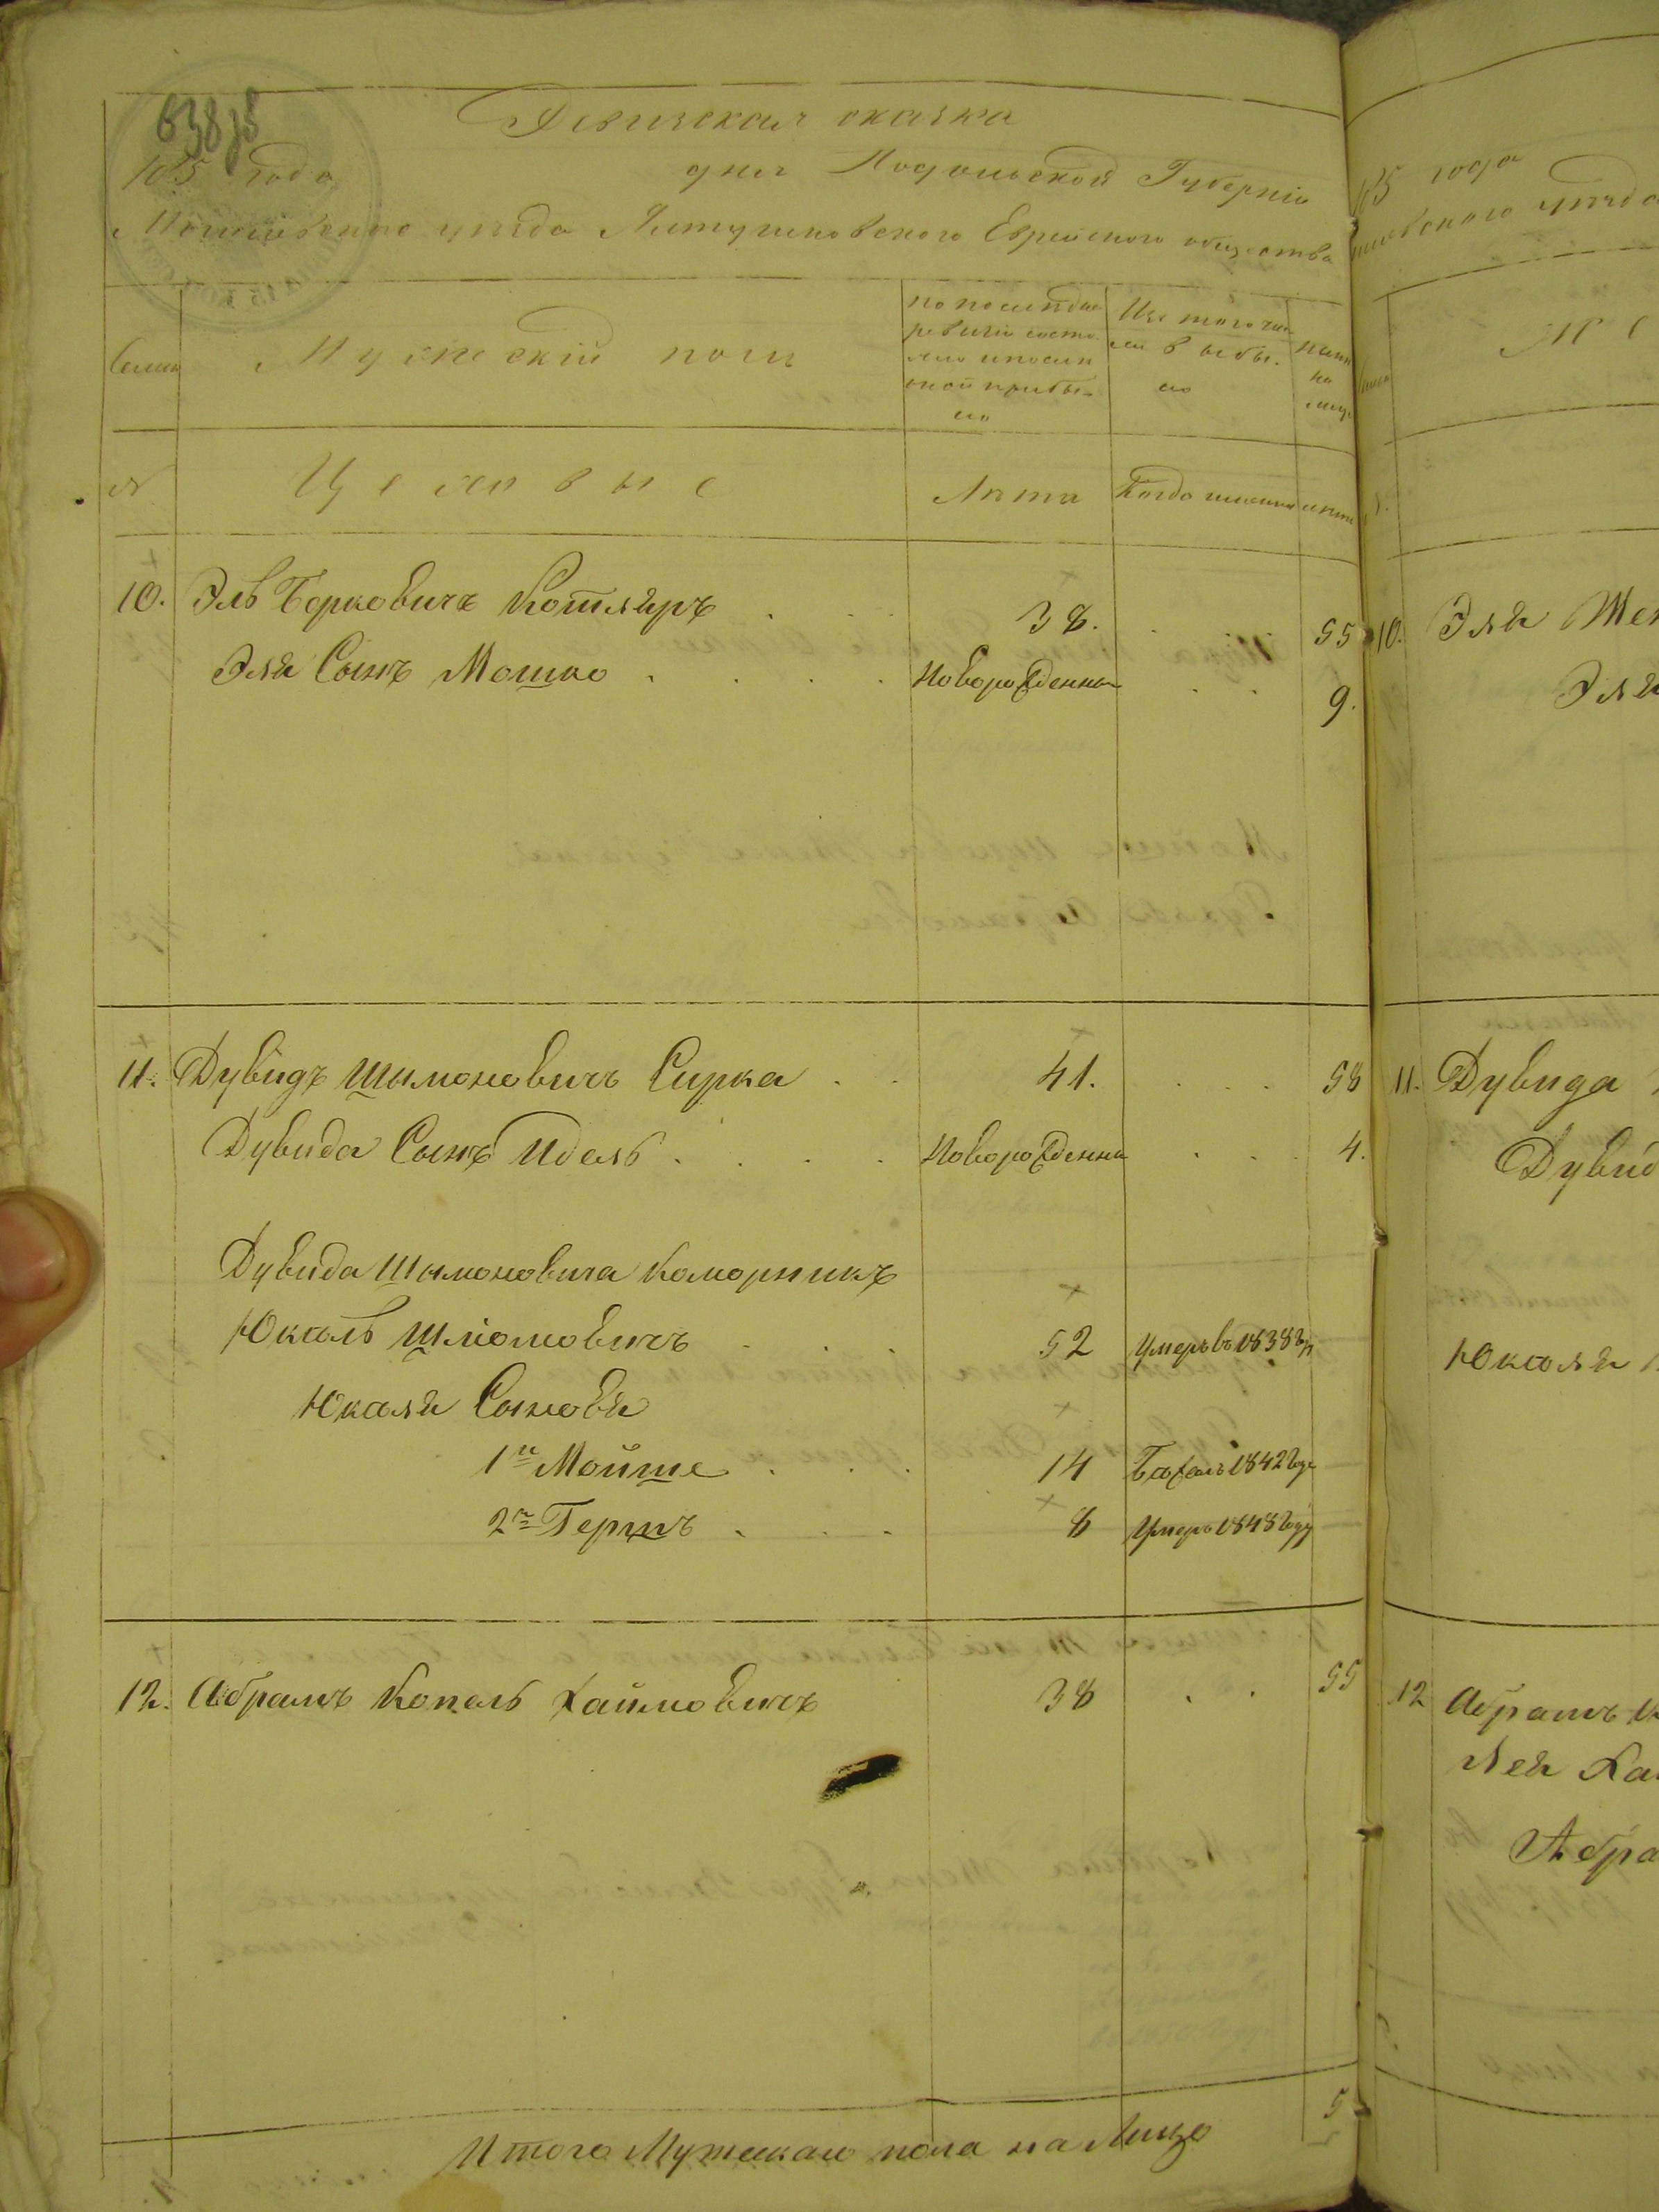 63875
185 года
Ревизская сказка
дня Подольской Губернiи
Могилевского уезда Ялтушковского Еврейского общества
Семьи
Мужескiй полъ
по последней ревизiи состояло и после оной прибыло
Изъ того числа выбыло
ныне на лицо
№
Целовые
Лета
Когда именно
лета
10. Эль Борковичъ Котляръ 38. 55
Эля Сынъ Мошко Новорожденны 9.
11. Дувидъ Шымоновичъ Сирка 41. 58
Дувида Сынъ Идель Новорожденны 4.
Дувида Шымоновича коморникъ
Юкель Шлiомовичъ 52 Умеръ въ 1838 г
Юкеля Сыновья
1й Мойше 14 Бежалъ 1842 Году
2й Гершъ 8 Умеръ 1848 Году
12. Абрамъ Копель Хаимовичъ 38 55
Итого Мужескаго пола на Лицо 5
185 года
уезда
10. Эля Жен
Эля
11. Дувида
Дувид
Юкеля
12 Абрамъ
Лея Хаи
Абра